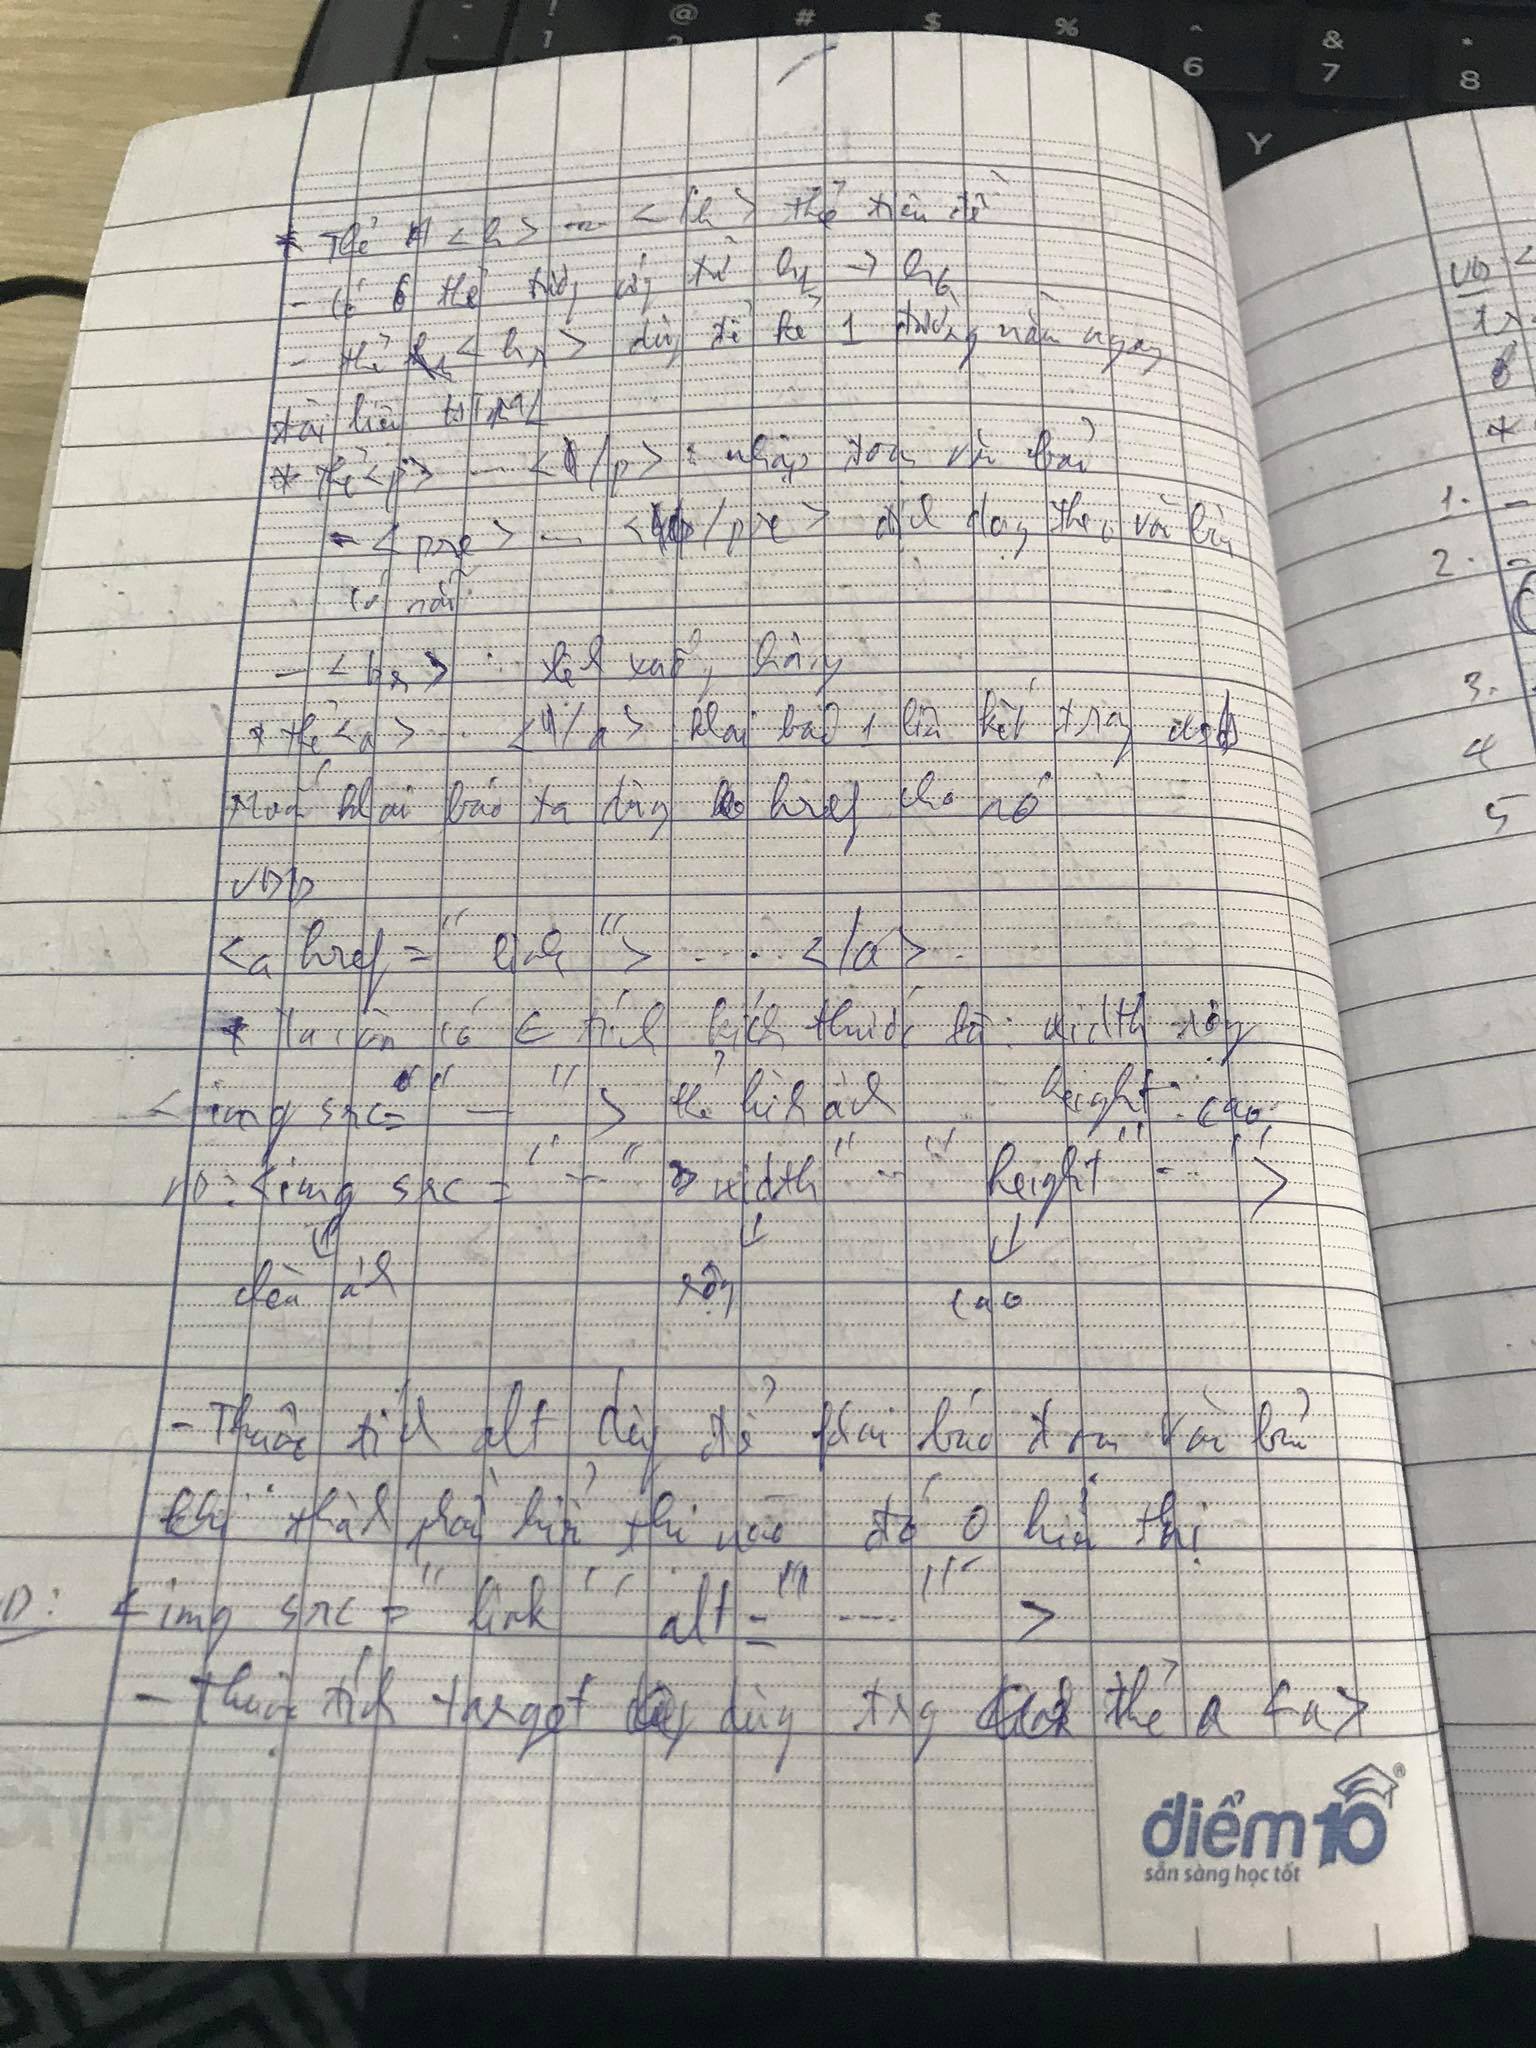 * Thẻ <h> ... </h> thẻ tiêu đề
- Có 6 thẻ tương ứng từ h1 → h6
- thẻ <hr> dùng để kẻ 1 đường nằm ngang
tài liệu HTML
* Thẻ <p> ... </p> : nhập đoạn văn bản
- <pre> ... </pre> định dạng theo văn bản
có sẵn
- <br> : xuống hàng
* thẻ <a> ... </a> khai báo 1 liên kết trong
Muốn khai báo ta dùng href cho nó
VD
<a href = "link"> .... </a>
* Ta cần có tính kích thước là : width rộng
<img src= " — " > thẻ hình ảnh height : cao
VD: <img src = " -- " width " -- " height " -- " >
↓ ↓ ↓
ảnh rộng cao
- Thuộc tính alt dùng để khai báo đoạn văn bản
khi thành phần hiển thị nào đó 0 hiển thị
D: <img src = "link" alt = " ---- " >
- Thuộc tính target dùng trg thẻ a <a>
điểm10®
sẵn sàng học tốt
VD: <
*
1. -
2. -
3.
4
5
! @ # $ % ^ & *
1 6 7 8
Y